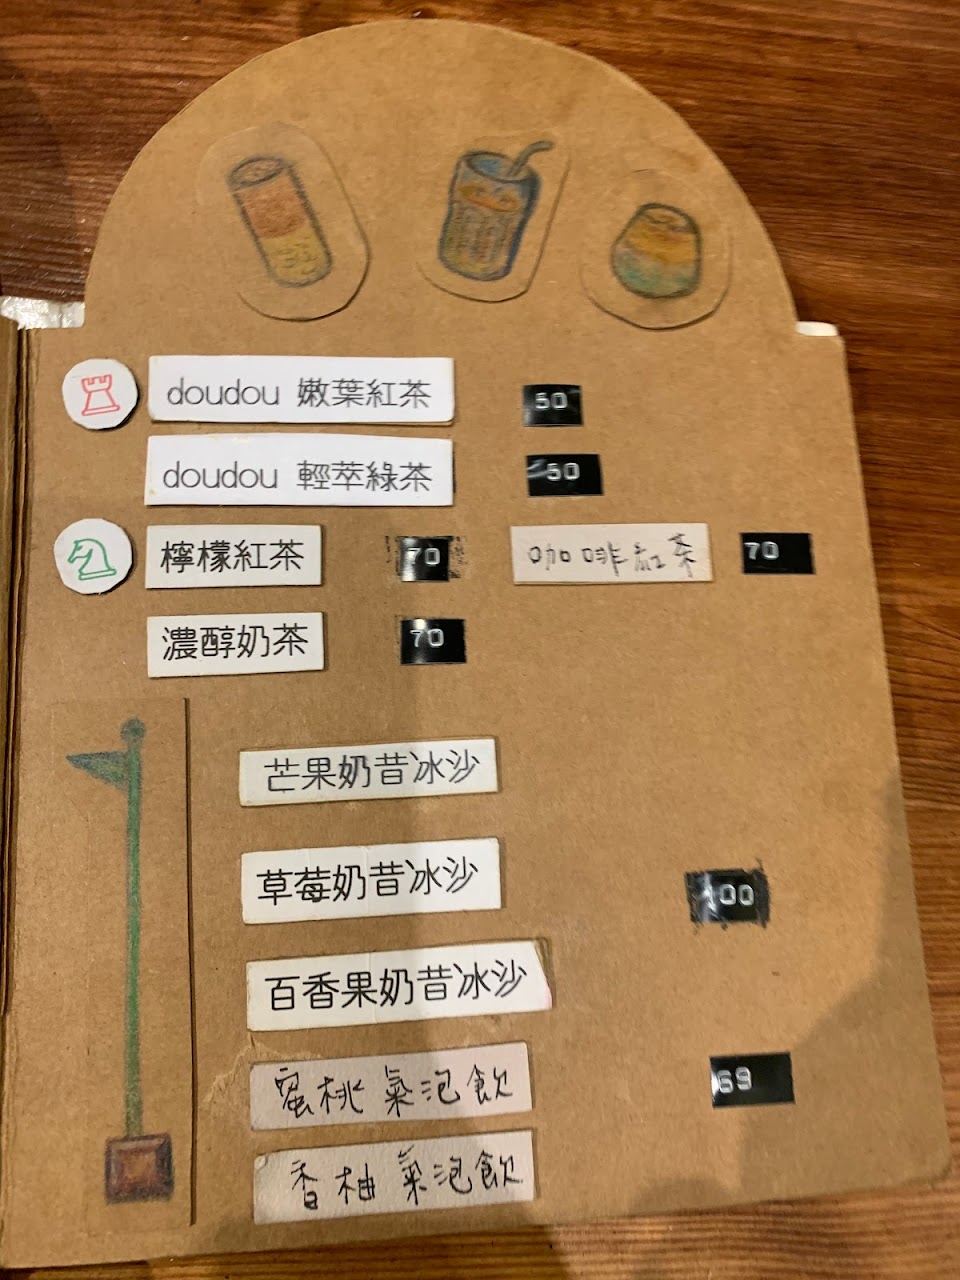 doudou 嫩葉紅茶 50
doudou 輕萃綠茶 50
檸檬紅茶 70 咖啡紅茶 70
濃醇奶茶 70
芒果奶昔冰沙
草莓奶昔冰沙 100
百香果奶昔冰沙
蜜桃氣泡飲 69
香柚氣泡飲